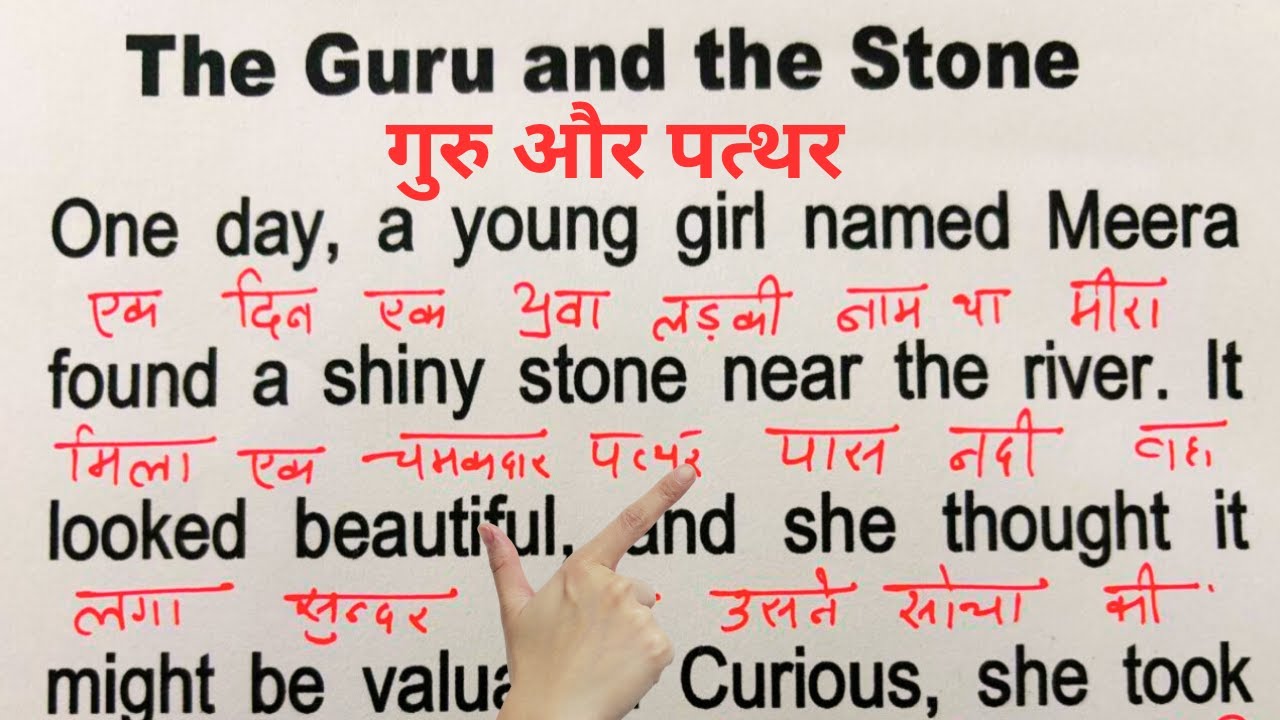 The Guru and the Stone
गुरु और पत्थर
One day, a young girl named Meera
एक दिन एक युवा लड़की नाम था मीरा
found a shiny stone near the river. It
मिला एक चमकदार पत्थर पास नदी वह
looked beautiful, and she thought it
लगा सुन्दर उसने सोचा की
might be Curious, she took